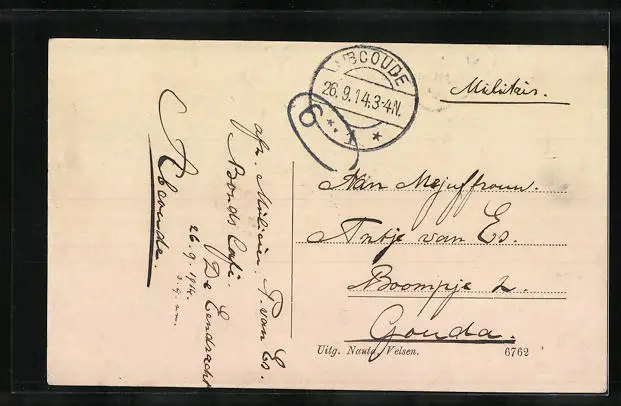 ABCOUDE
26.9.14.3-4N.
6
Militair.
Aan Mejuffrouw.
Antje van Es.
Boompje 2.
Gouda.
Uitg. Nauta, Velsen.
6762
afz. Milicien. T. van Es.
Bonds Café.
De Eendracht
26.9.1914.
Abcoude.